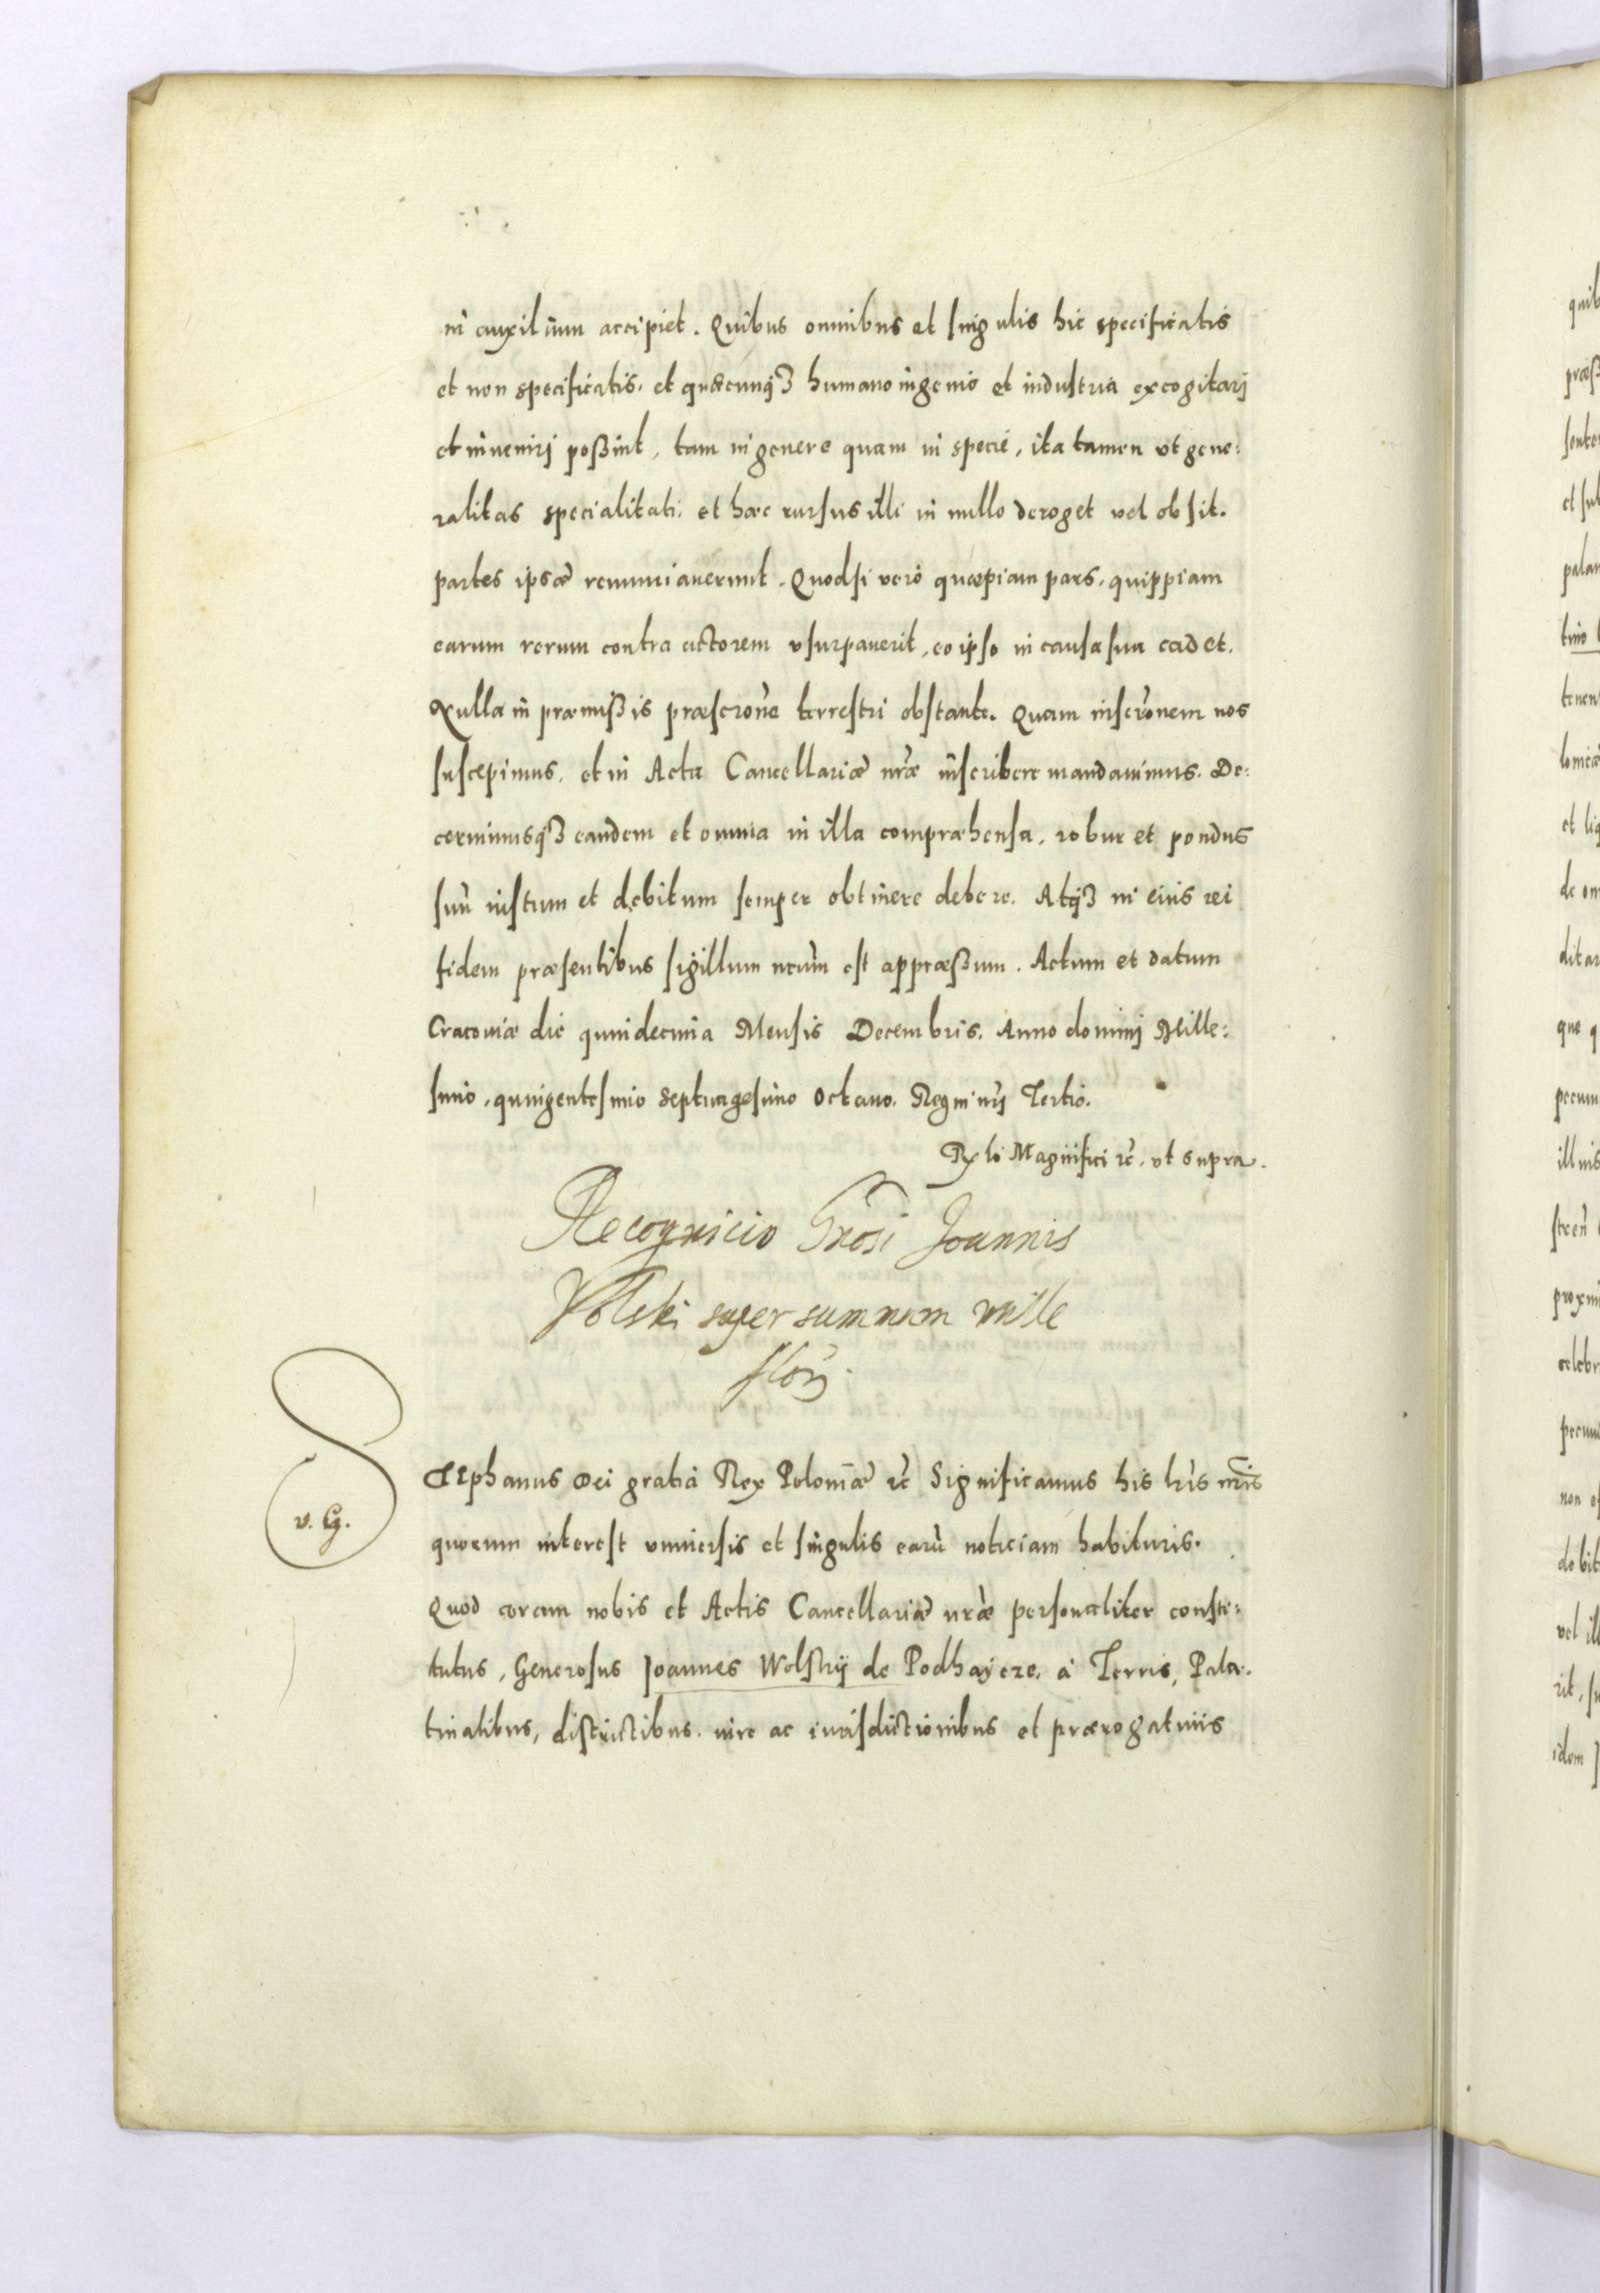 in auxilium accipiet. Quibus omnibus et singulis hic specificatis
et non specificatis. et quæcunq3 humano ingenio et industria excogitarj
et inuenirj poßint, tam in genere quam in specie, ita tamen vt gene:
ralitas specialitati. et hæc rursus illi in nullo deroget vel obsit.
partes ipsæ renunciauerunt. Quodsi vero quæpiam pars, quippiam
earum rerum contra actorem vsurpauerit, eo ipso in causa sua cadet.
Nulla in præmißis præscrōne terrestri obstante. Quam inscrōnem nos
suscepimus. et in Acta Cancellariæ nr̃æ inscribere mandauimus. De:
cernimusq3 eandem et omnia in illa compræhensa, robur et pondus
suũ iustum et debitum semper obtinere debere. Atq3 in eius rei
fidem præsentibus sigillum nrũm est appræßum. Actum et datum
Cracouiæ die quindecima Mensis Decembris. Anno dominj Mille:
simo, quingentesimo septuagesimo octauo. Regni nrj Tertio.
Rx lõ Magnifici rc̃. vt supra.
Recognicio Gnosi Joannis
Volski super summam mille
flor̃.
STEphanus Dei gratia Rex Poloniæ rc̃ Significamus his lrĩs nrĩs
v. G.
quorum interest vniuersis et singulis earũ noticiam habituris.
Quod coram nobis et Actis Cancellariæ nr̃æ personaliter consti:
tutus, Generosus Joannes Wolskij de Podhajcze. à Terris, Pala:
tinatibus, districtibus. iure ac iurisdictionibus et prærogatiuis
quib
præß
et sub
palam
et lig
de om
que q
non es
debit
vel ill
idem J